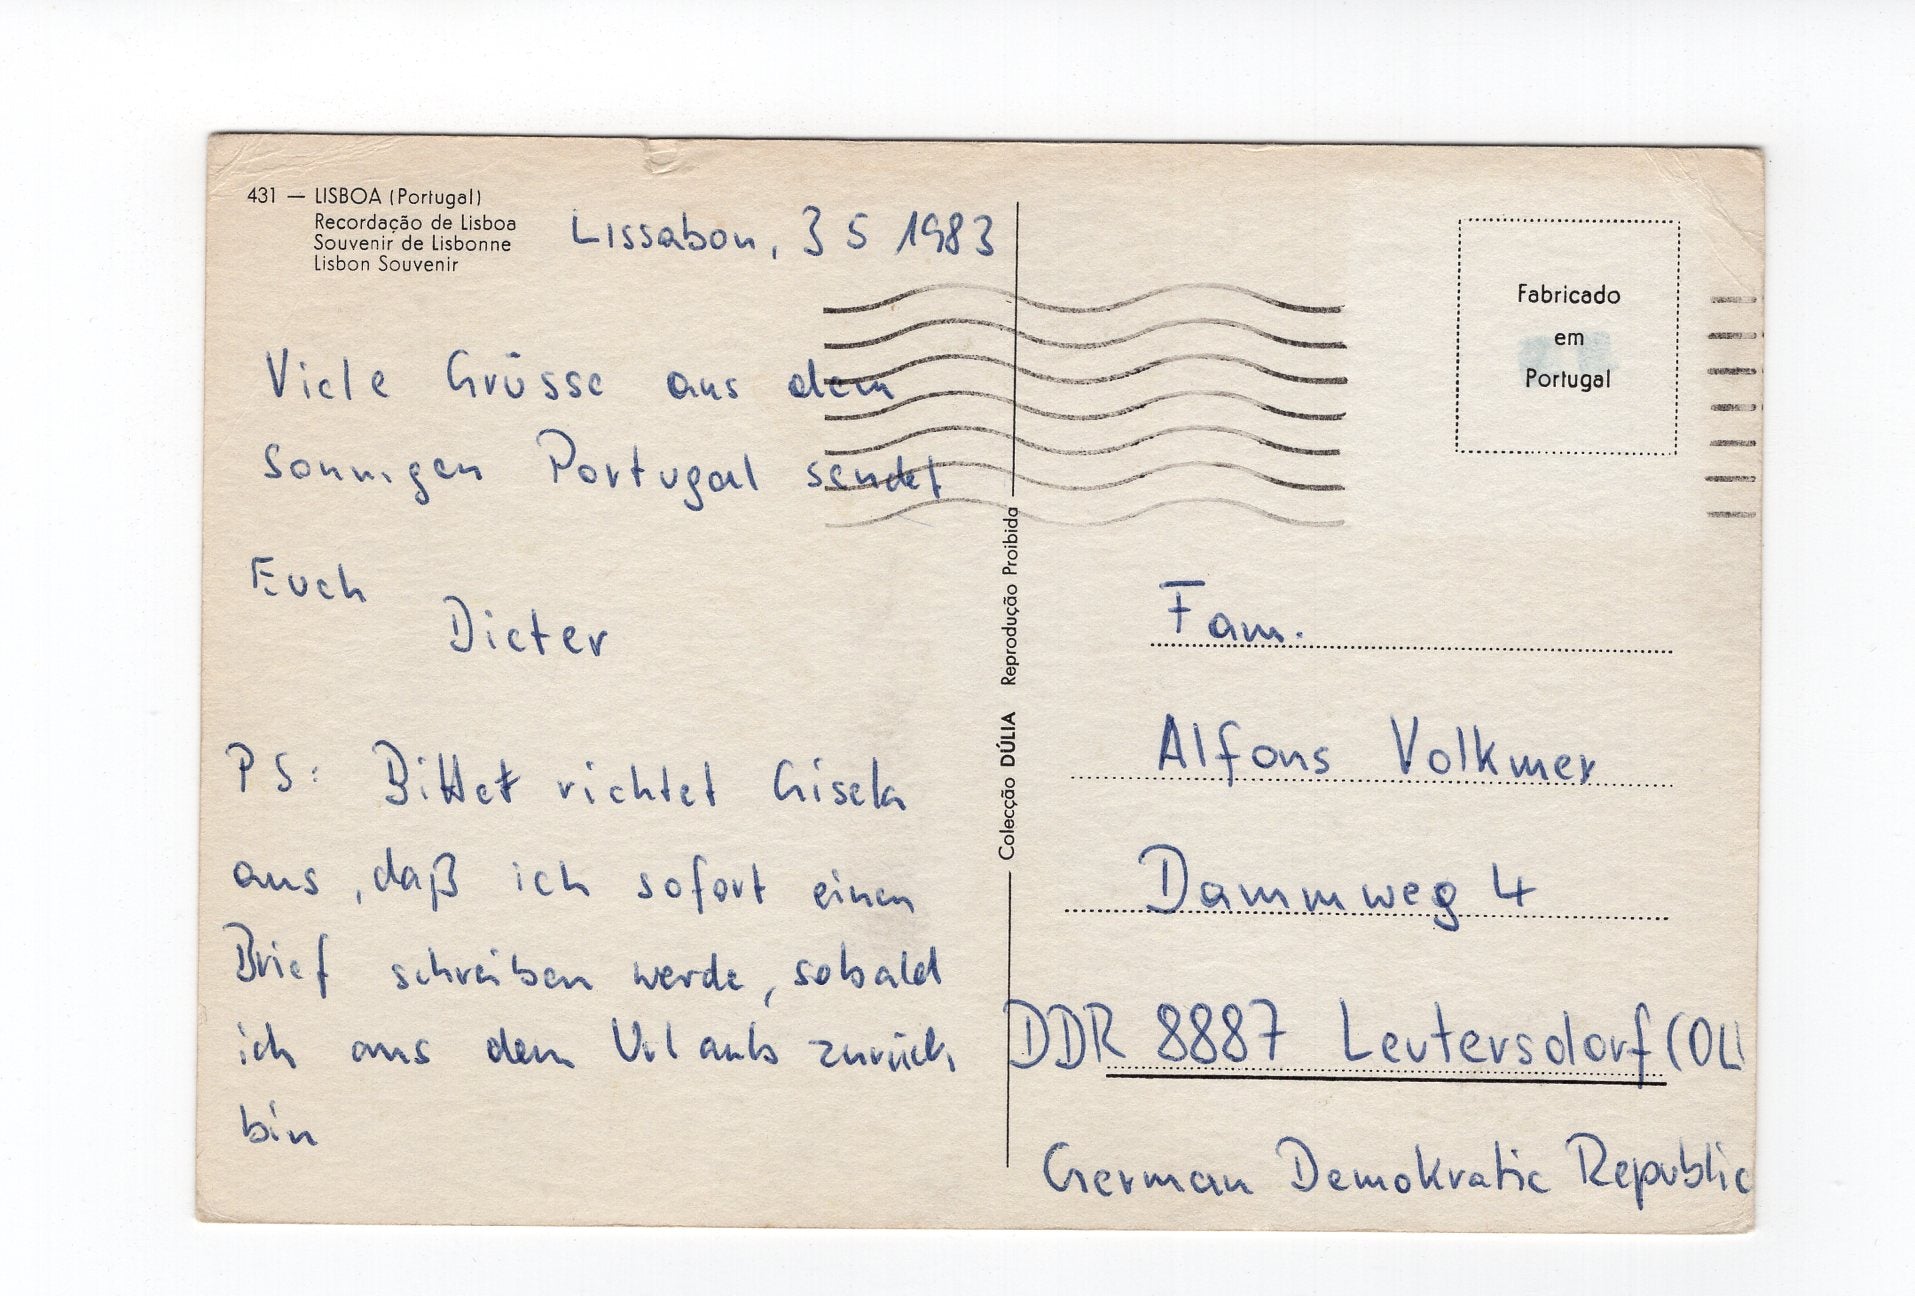 431 — LISBOA (Portugal)
Recordação de Lisboa
Souvenir de Lisbonne
Lisbon Souvenir
Lissabon, 3 5 1983
Viele Grüsse aus dem
sonnigen Portugal sendet
Euch
Dieter
PS: Bittet richtet Gisela
aus, daß ich sofort einen
Brief schreiben werde, sobald
ich aus dem Urlaub zurück
bin
Colecção DÚLIA Reprodução Proibida
Fabricado
em
Portugal
Fam.
Alfons Volkmer
Dammweg 4
DDR 8887 Leutersdorf (OL)
German Demokratic Republic